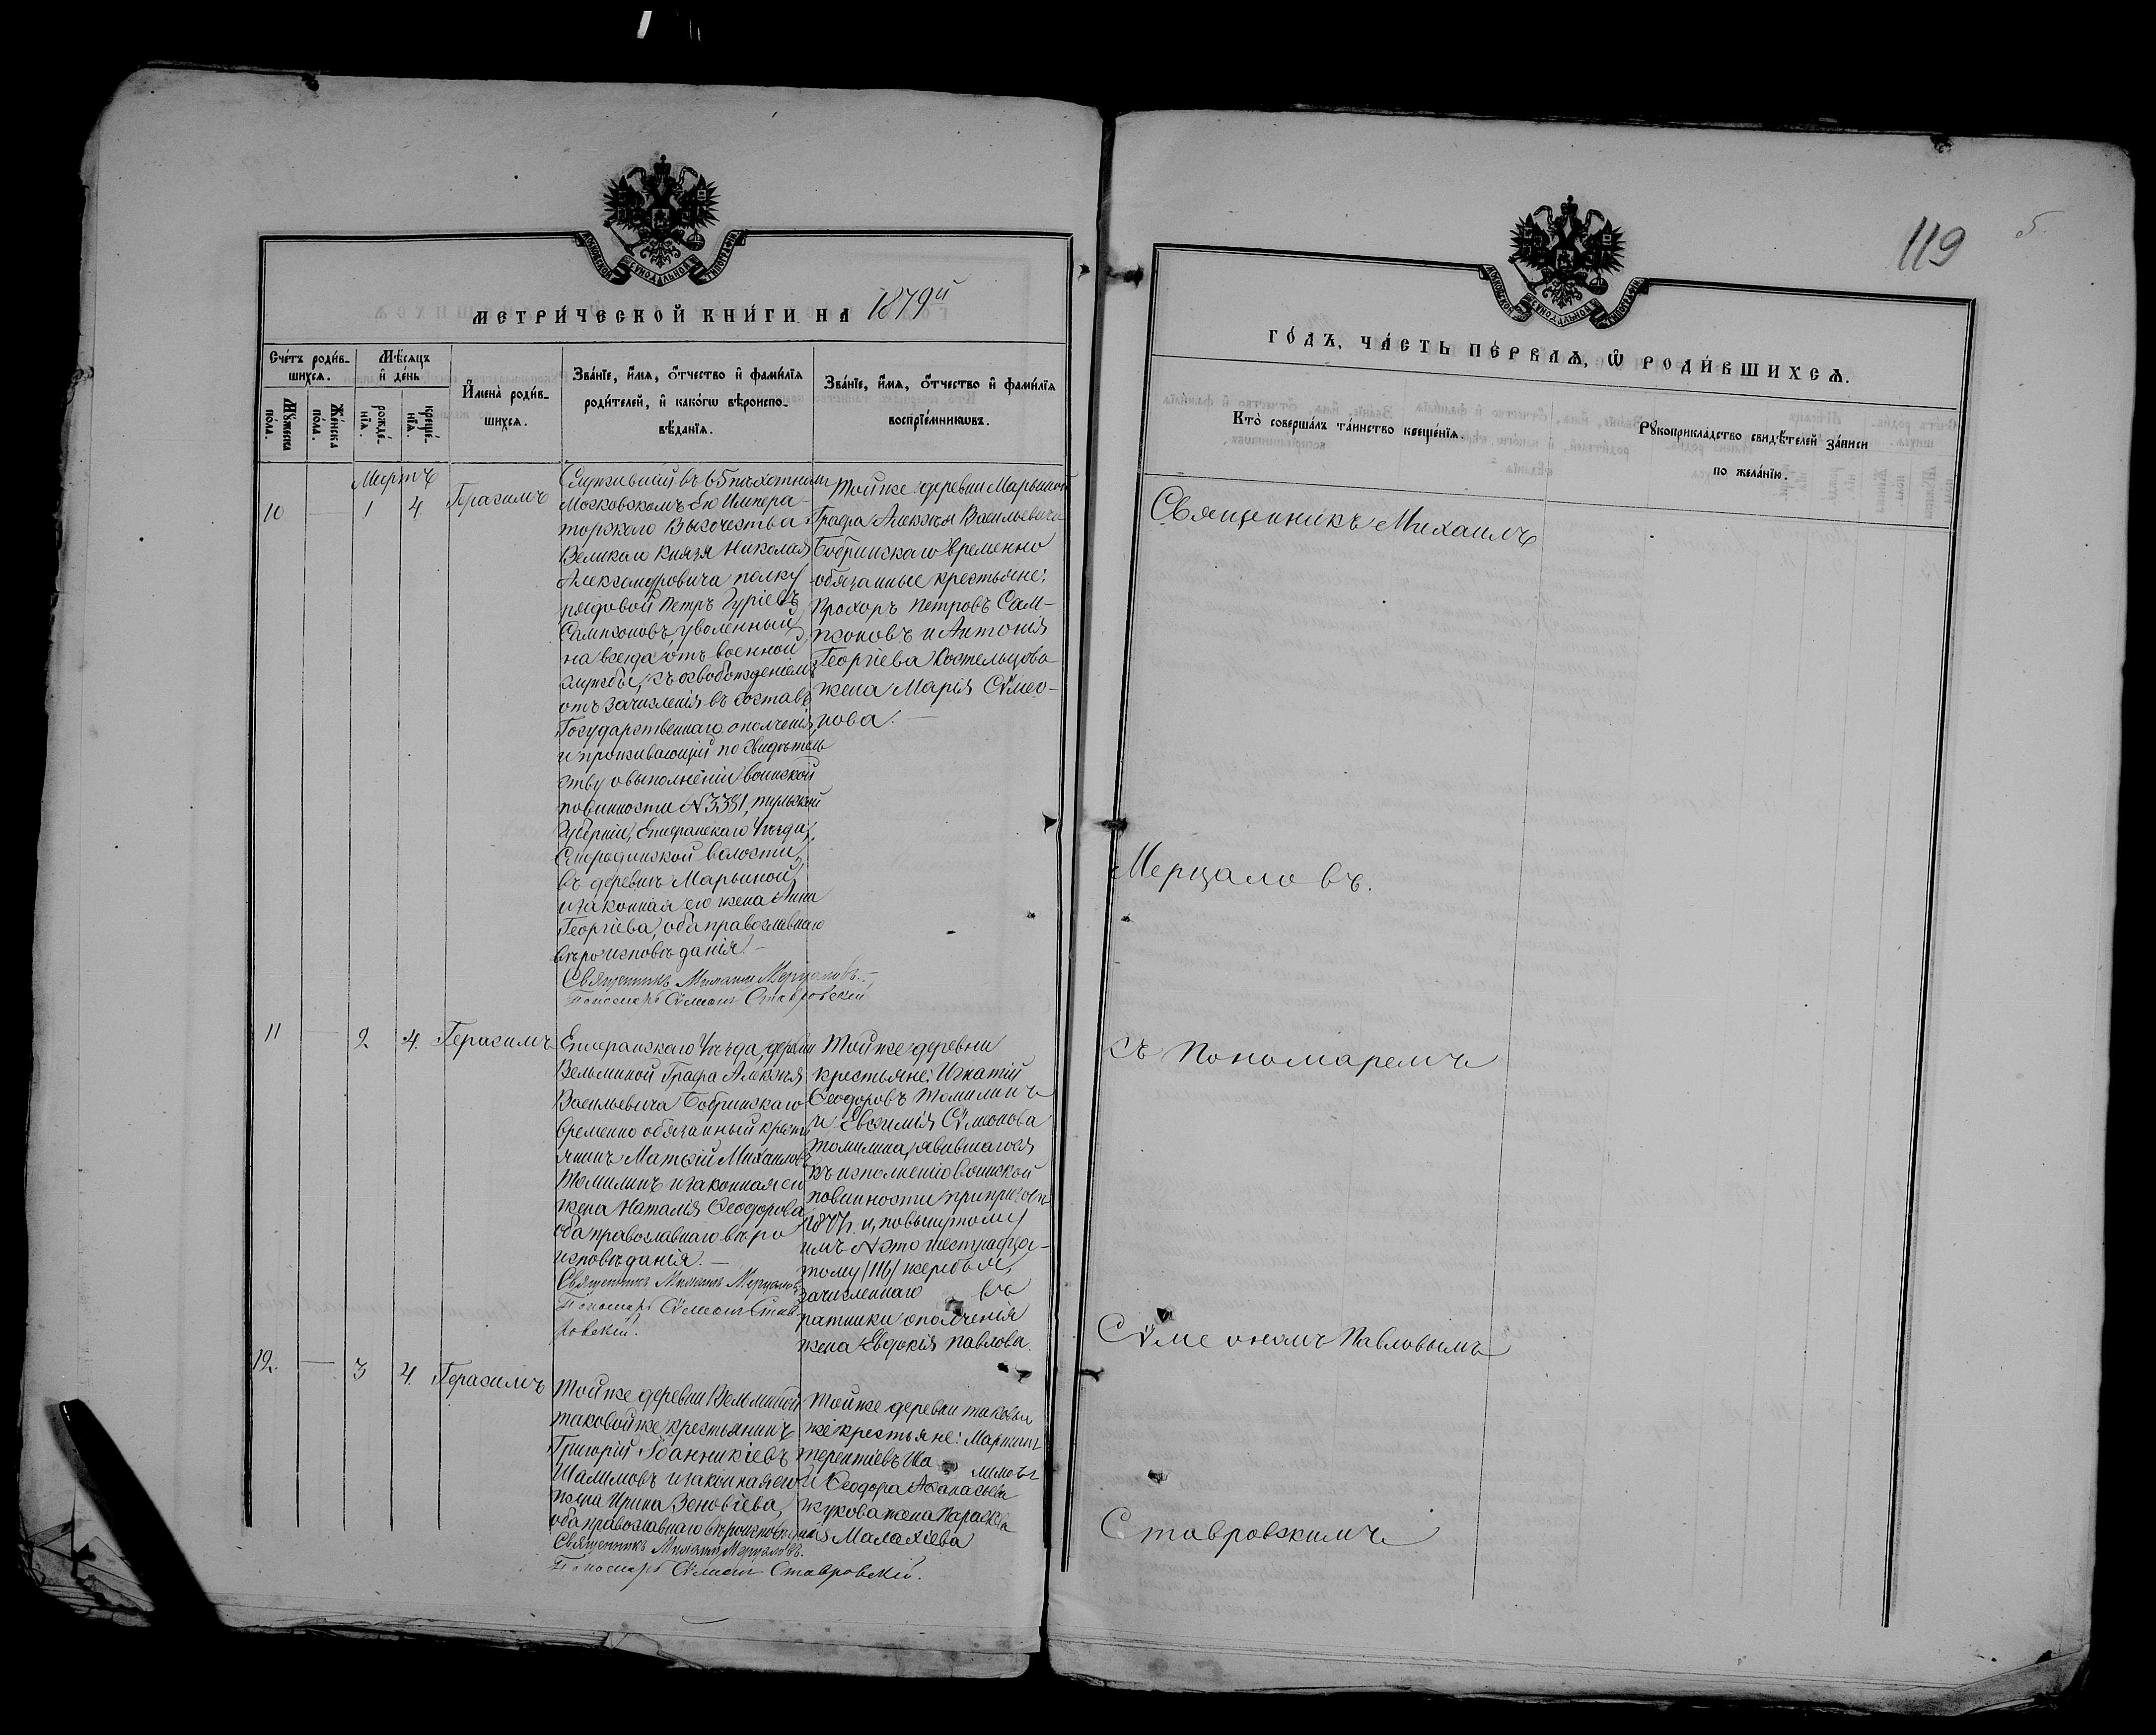 МЕТРИ́ЧЕСКОЙ КНИ́ГИ НА 1879й
Сче́тъ роди́в-
шихсѧ.
Мѣ́сяцъ
и҆ де́нь
И҆мена̀ роди́в-
шихсѧ.
Зва́нїе, и҆́мѧ, ѻ҆́тчество и҆ фами́лїѧ
роди́телей, и҆ како́гѡ вѣроиспо-
вѣ́данїѧ.
Зва́нїе, и҆́мѧ, ѻ҆́тчество и҆ фами́лїѧ
воспрїе́мникѡвъ.
Мꙋ́жеска
по́ла.
Же́нска
по́ла.
рожде́-
нїѧ.
креще́-
нїѧ.
Мартъ
10 — 1 4 Герасимъ
Служившій въ 65 пѣхотномъ
Московскомъ Его Импера-
торскаго Высочества
Великаго Князя Николая
Александровича полку
рядовой Петръ Гуріевъ
Сампсоновъ, уволенный
на всегда отъ военной
службы, съ освобожденіемъ
отъ зачисленія въ составъ
Государственнаго ополченія,
и проживающій по свидѣтель
ству о выполненіи воинской
повинности №3381, тульской
Губерніи, Епифанскаго Уѣзда,
волости,
въ деревнѣ Марьиной,
и законная его жена Анна
Георгіева, оба православнаго
вѣроисповѣданія. —
Священникъ Михаилъ Мерцаловъ. —
Пономарь Сѵмеонъ Ставровскій
Той же деревни Марьиной
Графа Алексѣя Васильевича
Бобринскаго временно
обязанные крестьяне:
Прохоръ Петровъ Сам-
псоновъ и Антонія
Георгіева Костельцова
жена Марія Сѵмео-
нова. —
11 — 2 4. Герасимъ
Епифанскаго Уѣзда, деревни
Вельминой Графа Алексѣя
Васильевича Бобринскаго
временно обязанный кресть
янинъ Матѳій Михаиловъ
Томилинъ и законная его
жена Наталія Ѳеодорова,
оба православнаго вѣро
исповѣданія. —
Священникъ Михаилъ Мерцаловъ
Пономарь Сѵмеонъ Став-
ровскій.
Той же деревни
крестьяне: Игнатій
Ѳеодоровъ Томилинъ
и Евѳимія Сѵмеонова
Томилина, явившагося
къ исполненію воинской
повинности при призывѣ
1877г. и, по вынутому
имъ № сто шестнадца-
тому /116/ жеребью,
зачисленнаго въ
ратники ополченія
жена Евдокія Павлова.
12. — 3 4. Герасимъ
Той же деревни Вельминой
таковой же крестьянинъ
Григорій Іоанникіевъ
Шалимовъ и законная его
жена Ирина Зеновіева,
оба православнаго вѣроисповѣданія
Священникъ Михаилъ Мерцаловъ.
Пономарь Сѵмеонъ Ставровскій.
Той же деревни таковые
же крестьяне: Мартинъ
Терентіевъ Шалимовъ
и Ѳеодора Аѳанасьева
Жукова жена Параскева
Малахіева
119
5.
ГО́ДЪ, ЧА́СТЬ ПЕ́РВАѦ, Ѡ҆ РОДИ́ВШИХСѦ.
Кто̀ соверша́лъ та́инство креще́нїѧ.
Рꙋкоприкла́дство свидѣ́телей за́писи
по жела́нїю.
Священникъ Михаилъ
Мерцаловъ.
съ Пономаремъ
Сѵмеономъ Павловымъ
Ставровскимъ